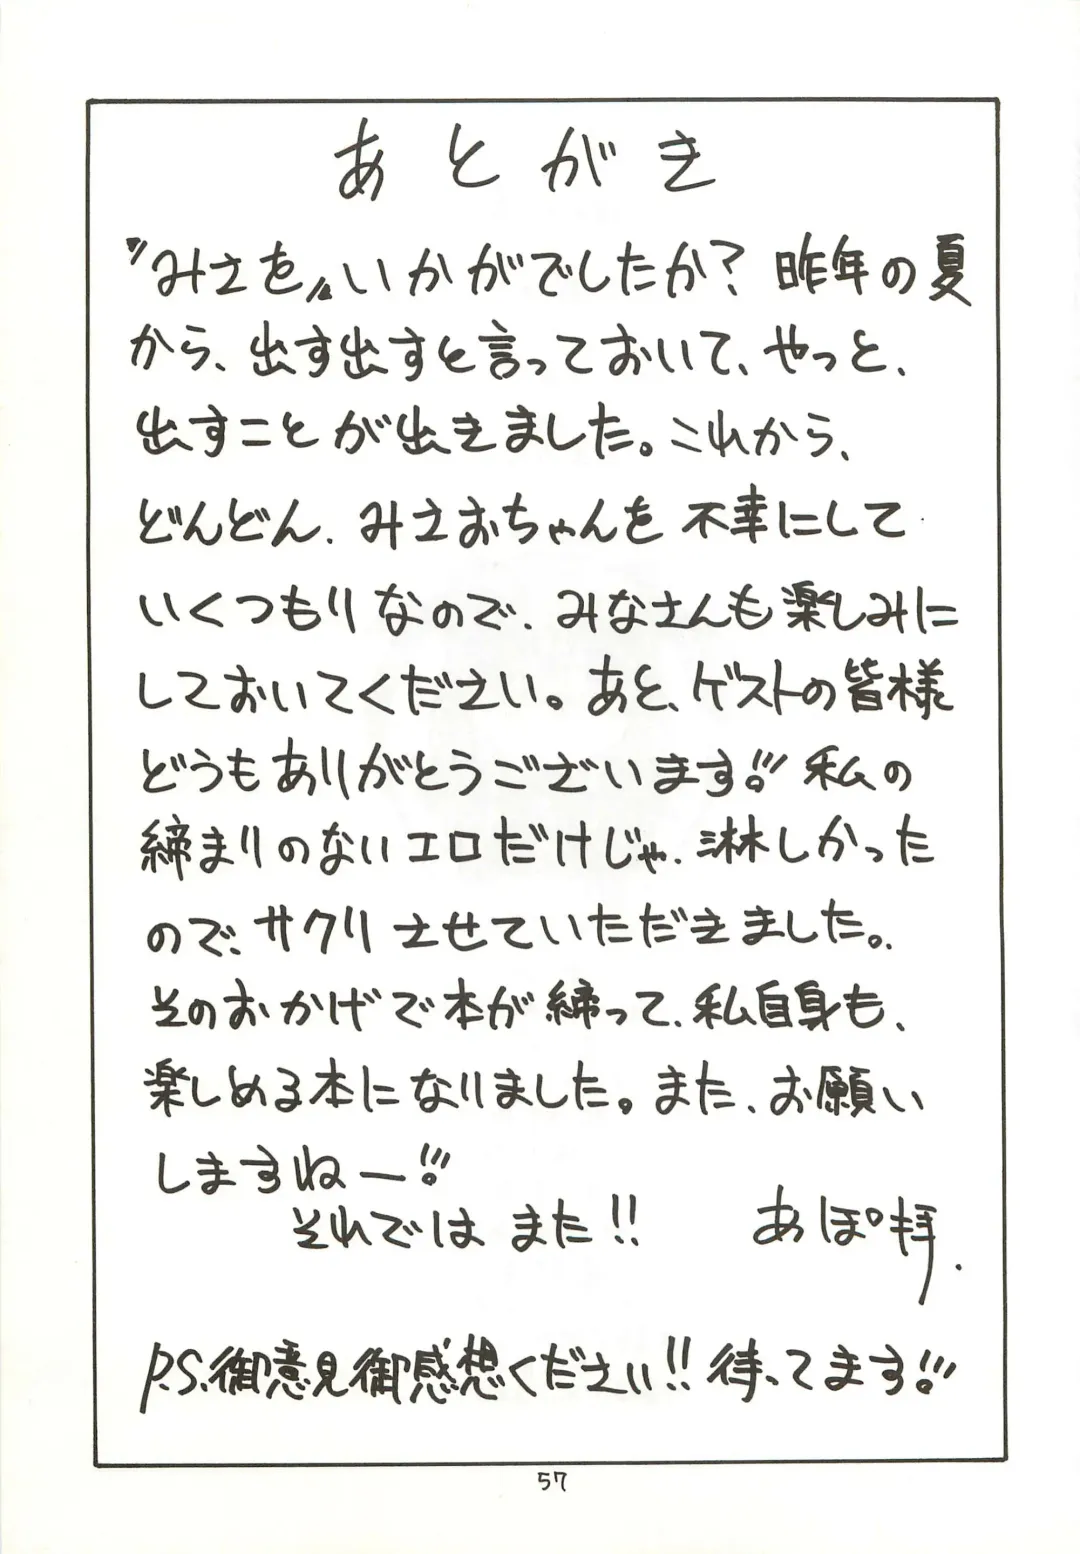 あとがき
〝みさを〟いかがでしたか？昨年の夏
から、出す出すと言っておいて、やっと、
出すことが出きました。これから、
どんどん、みさおちゃんを不幸にして
いくつもりなので、みなさんも楽しみに
しておいてください。あと、ゲストの皆様
どうもありがとうございます!!! 私の
締まりのないエロだけじゃ、淋しかった
ので、サクリさせていただきました。
そのおかげで本が締って、私自身も、
楽しめる本になりました。また、お願い
しますねー!!!
それでは また!!  あぽ拝.
P.S.御意見御感想ください!! 待ってます!!!
57